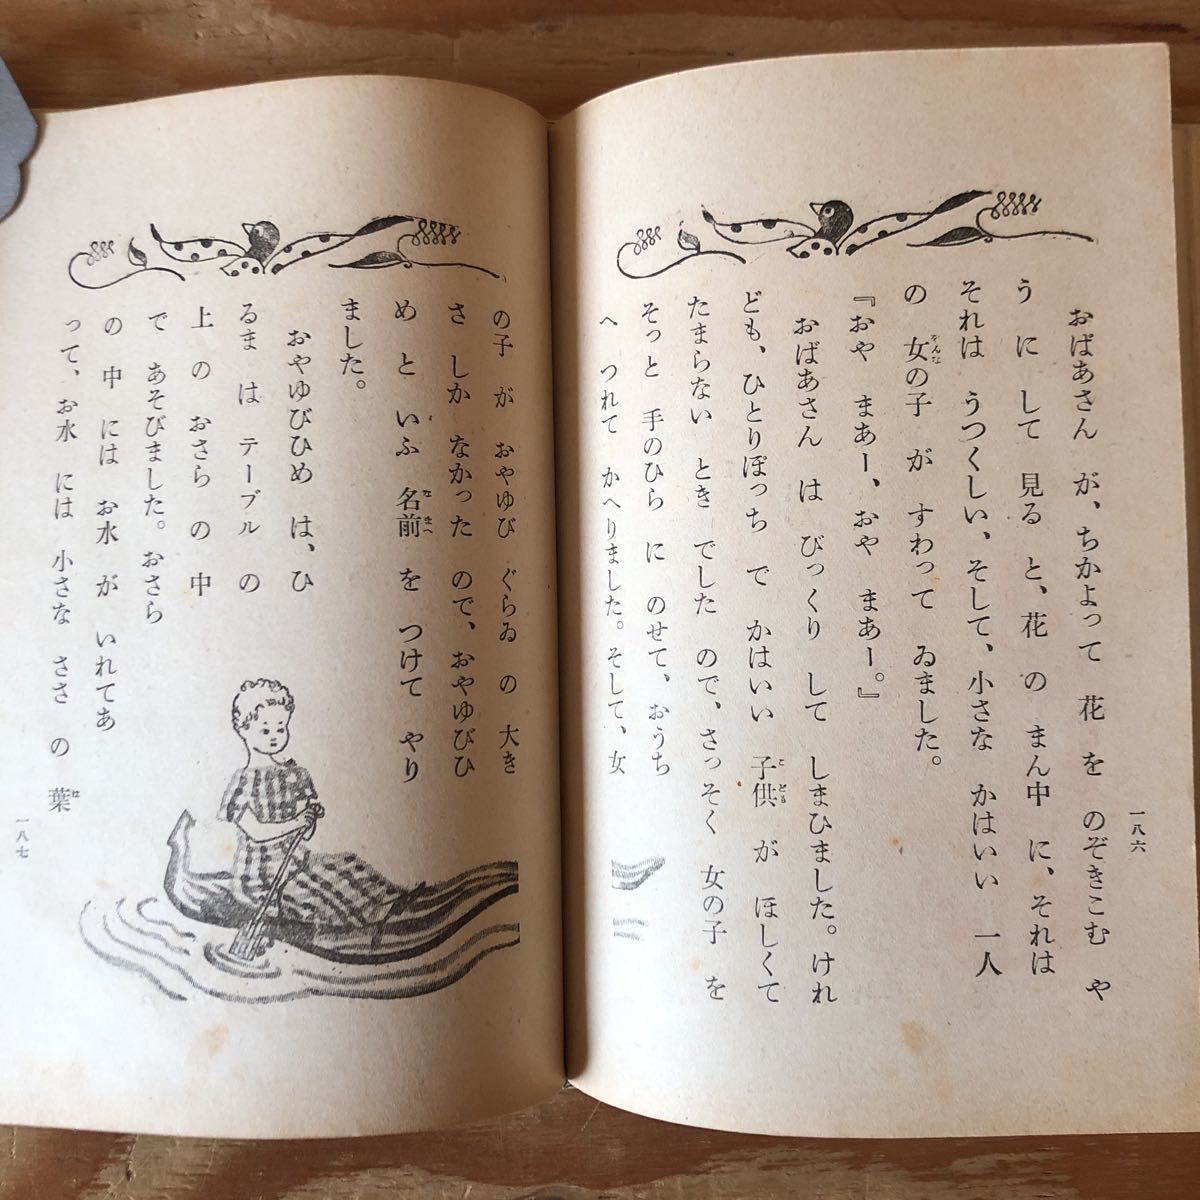 一八六
おばあさん が、ちかよって 花 を のぞきこむ や
う に して 見る と、花 の まん中 に、それは
それは うつくしい、そして、小さな かはいい 一人
の 女の子 が すわって ゐました。
『おや まあー、おや まあー。』
おばあさん は びっくり して しまひました。けれ
ども、ひとりぼっち で かはいい 子供 が ほしくて
たまらない とき でした ので、さっそく 女の子 を
そっと 手のひら に のせて、おうち
へ つれて かへりました。そして、女
の子 が おやゆび ぐらゐ の 大き
さ しか なかった ので、おやゆびひ
め と いふ 名前 を つけて やり
ました。
おやゆびひめ は、ひ
るま は テーブル の
上 の おさら の 中
で あそびました。おさら
の 中 には お水 が いれてあ
って、お水 には 小さな ささ の 葉
一八七